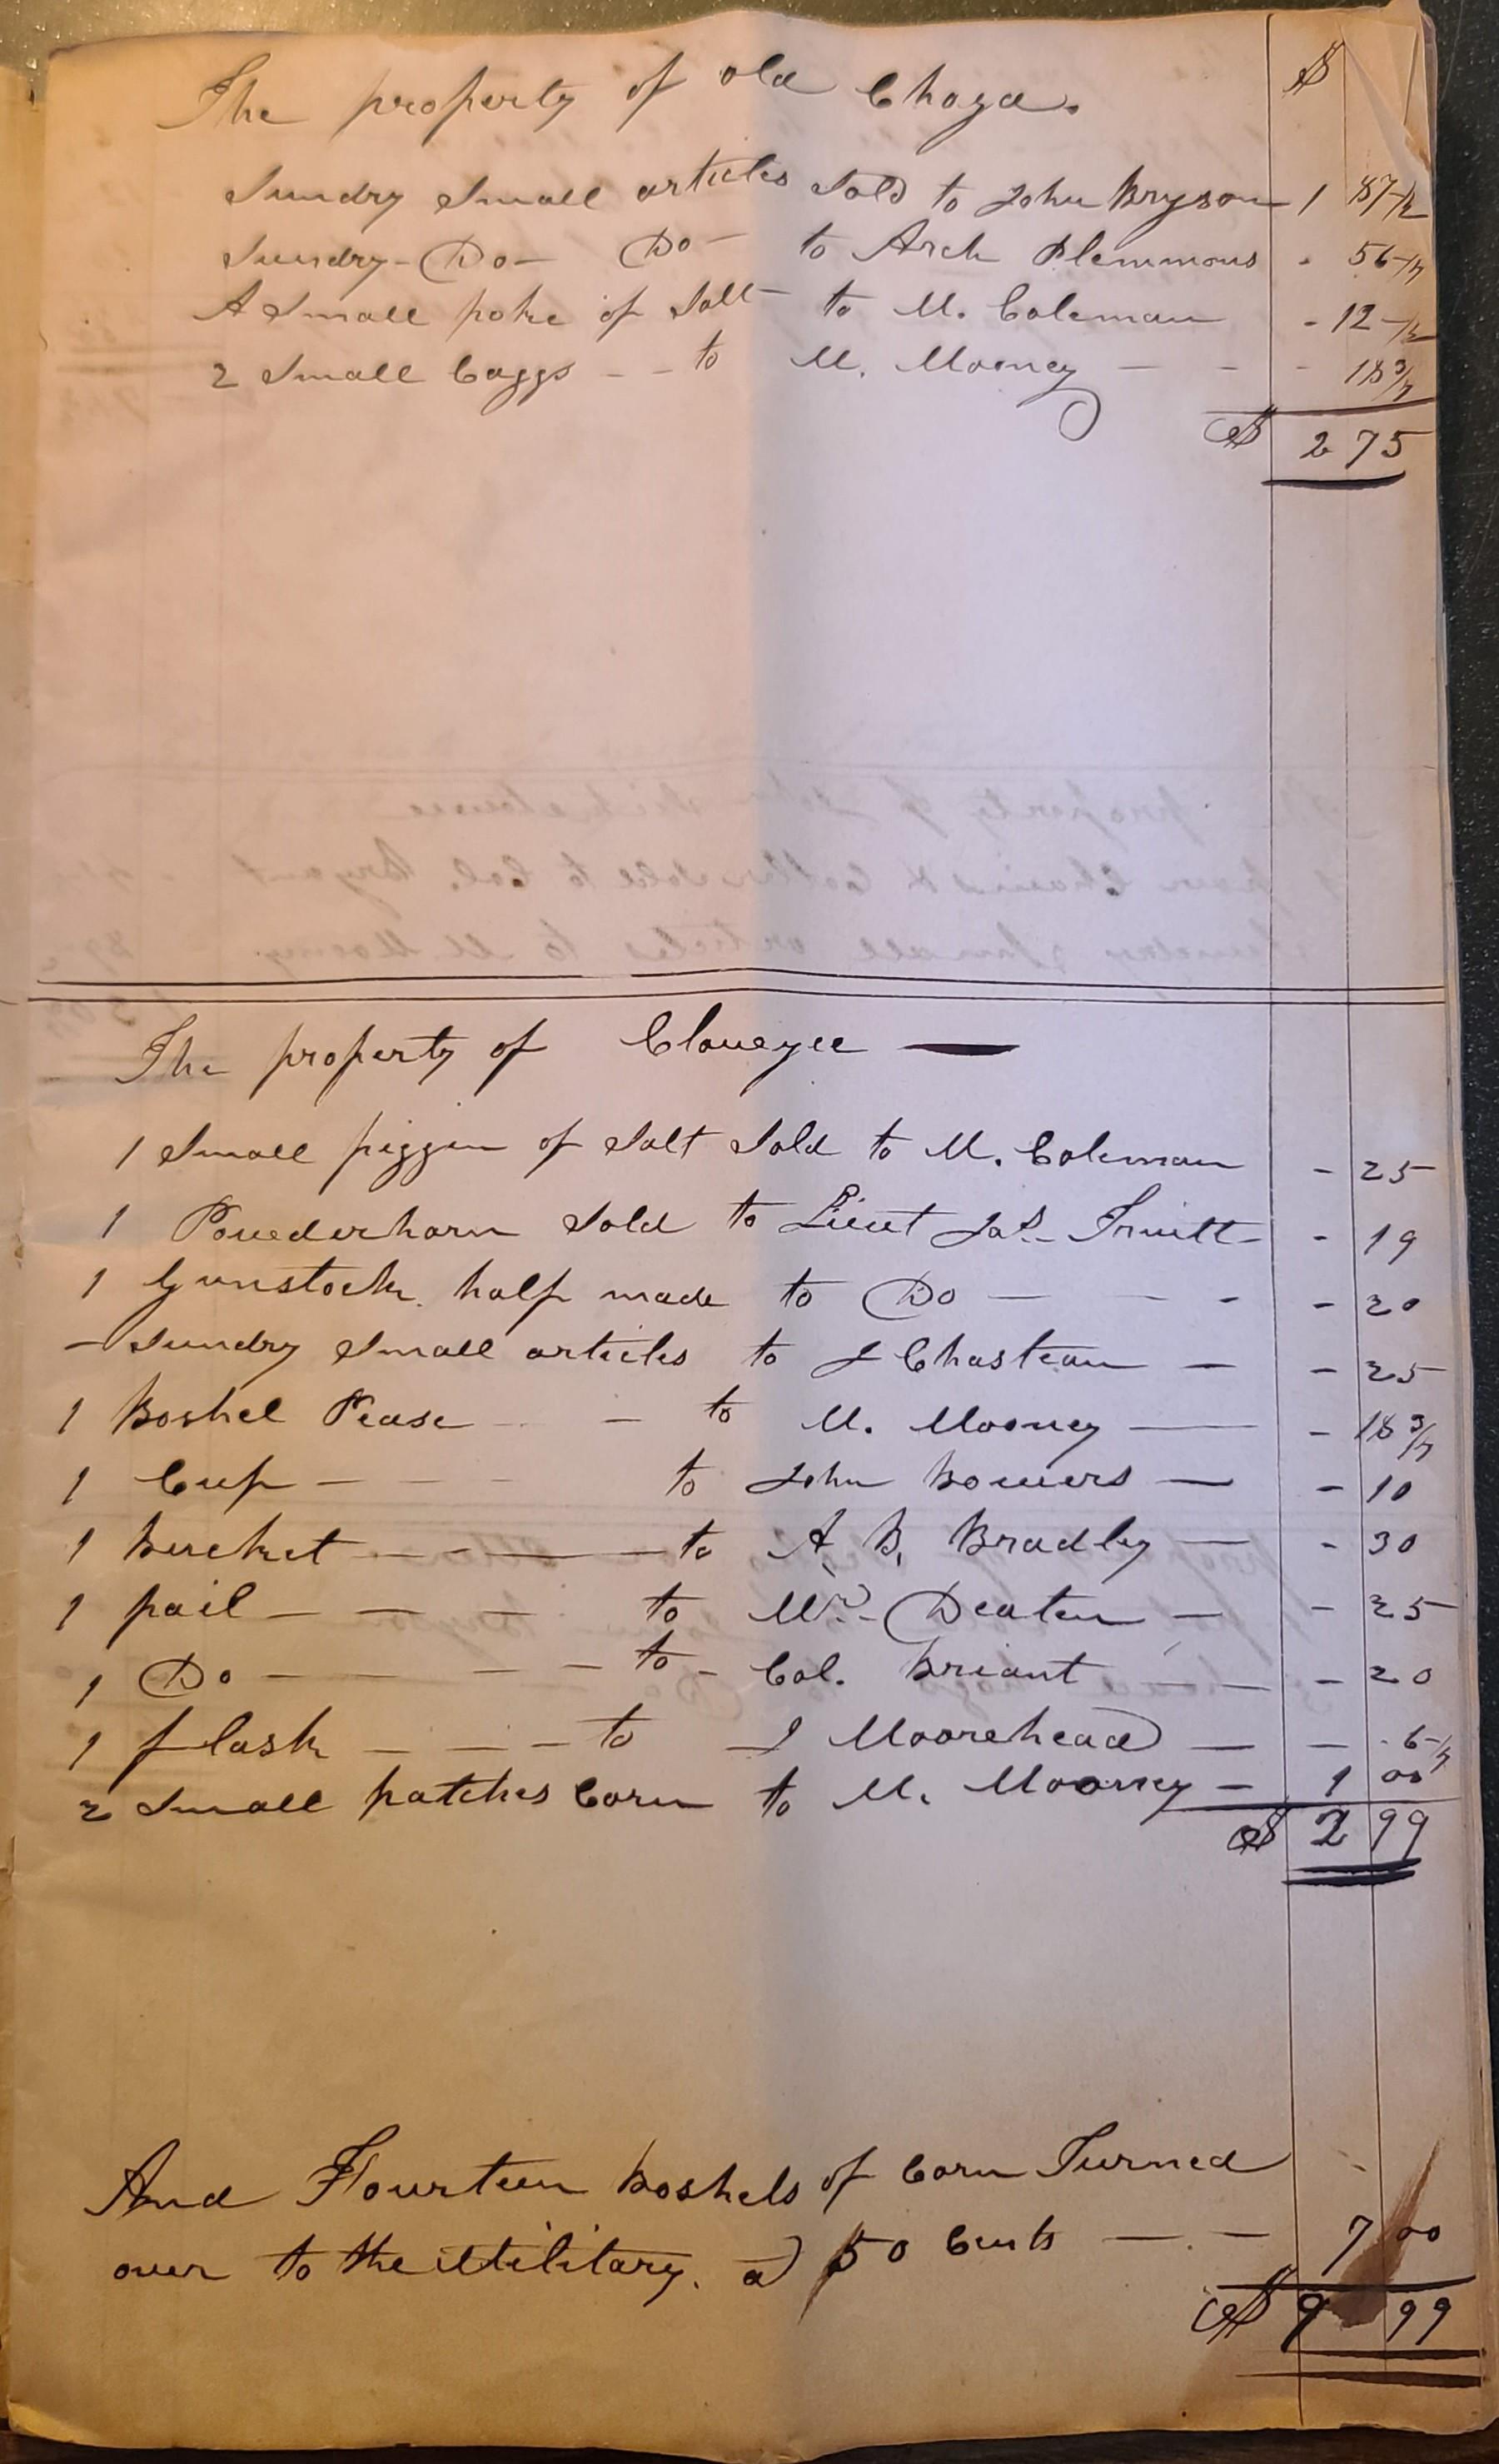 The property of old Choga.
$
Sundry Small articles Sold to John Bryson 1 87 1/2
Sundry - Do - Do - to Arch Plemmons - 56 1/4
A Small poke of Salt - to M. Coleman - 12 1/2
2 Small baggs - - to M. Mooney - - - 18 3/4
$ 2 75
The property of Cloueyee —
1 Small piggin of Salt Sold to M. Coleman - 25
1 Pouederhorn Sold to Lieut Jas. Truitt - - 19
1 Gunstock half made to Do - - - - 20
- Sundry Small articles to J Chastean - - 25
1 Boshel Pease - - to M. Mooney - - 18 3/4
1 Cup - - - to John Bowers - - 10
1 Bucket - - - to A. B. Bradley - - 30
1 pail - - - to Mr. - Deaton - - 25
1 Do - - - - to - Col. Briant - - - 20
1 flask - - - to J Moorehead - - 6 1/4
2 Small patches Corn to M. Mooney - 1 00
$ 2 99
And Fourteen Boshels of Corn Turned
over to the Military. a 50 Cents - - 7 00
$ 9 99